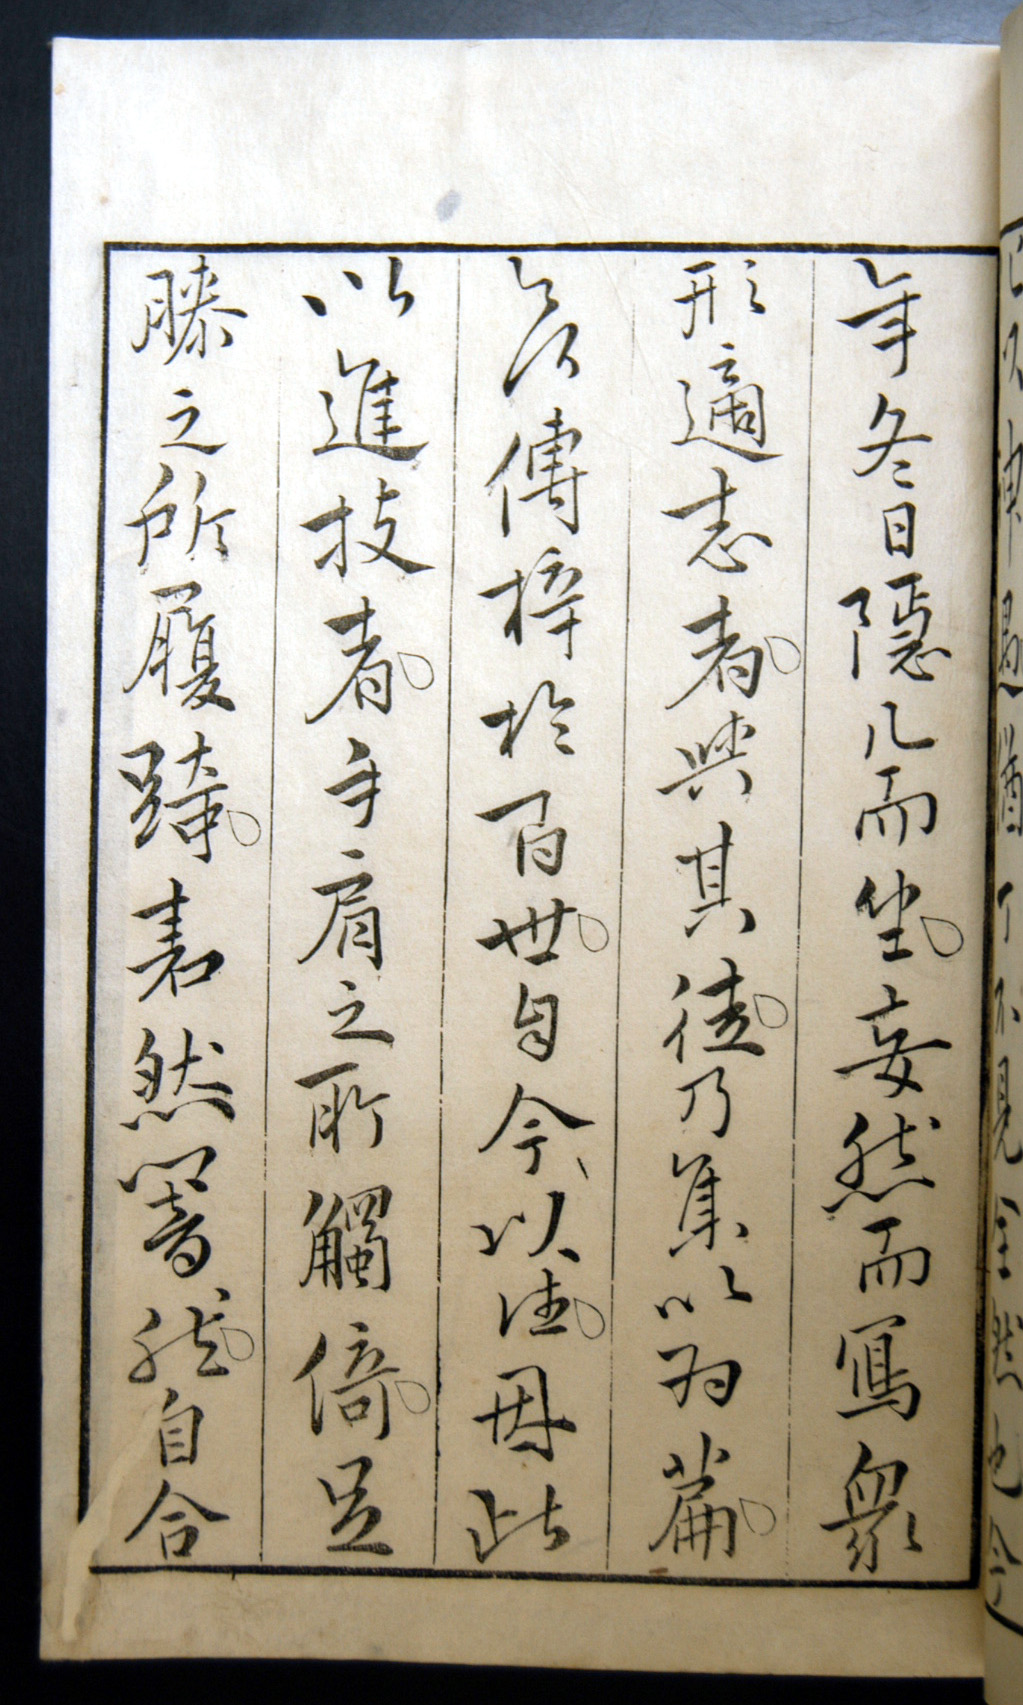 年冬日隱几而坐妄然而寫衆
形適志者與其徒乃集以為篇
欲傳梓於百世自今以往因此
以進技者手肩之所觸倚足
膝之所履踦砉然響然自合